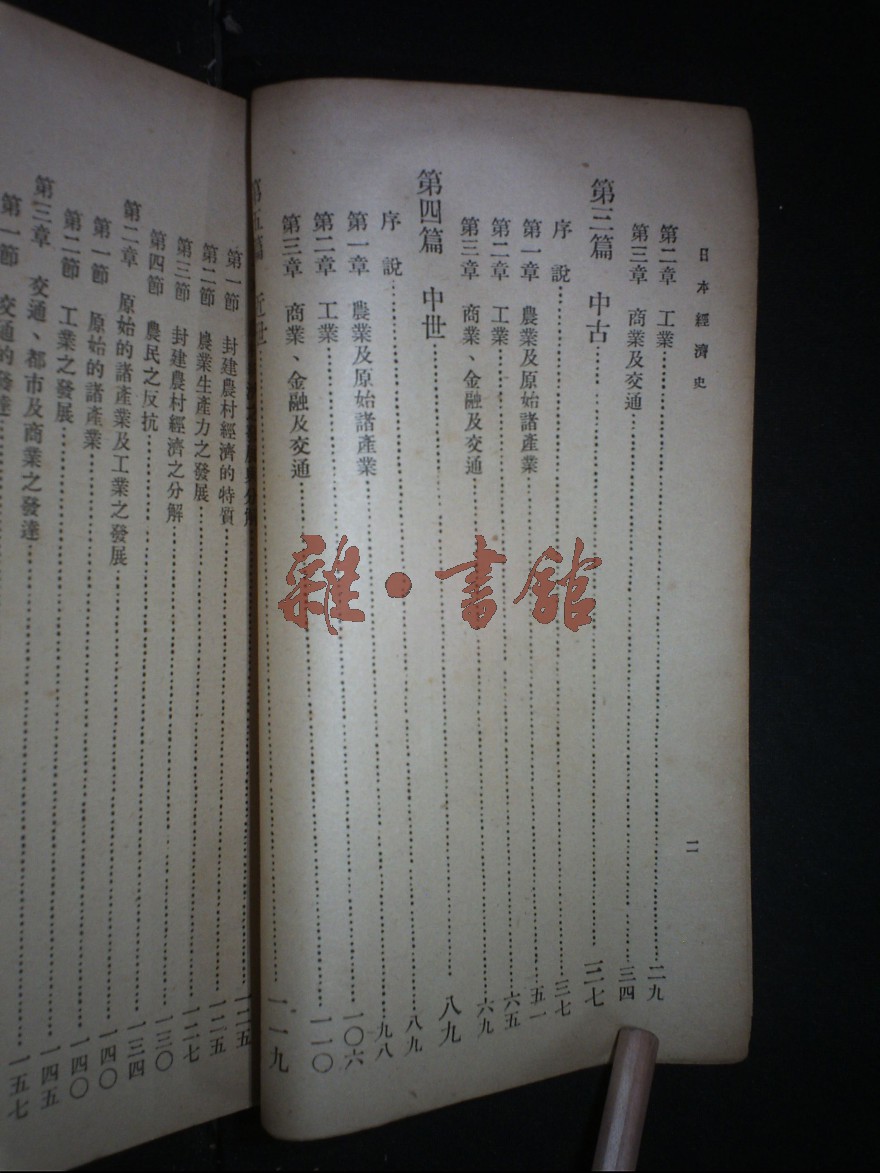 日本經濟史
二
第二章 工業……二九
第三章 商業及交通……三四
第三篇 中古……三七
序說……三七
第一章 農業及原始諸產業……五一
第二章 工業……六五
第三章 商業、金融及交通……六九
第四篇 中世……八九
序說……八九
第一章 農業及原始諸產業……九八
第二章 工業……一〇六
第三章 商業、金融及交通……一一〇
第五篇 近世……一一九
分解……一二五
第一節 封建農村經濟的特質……一二五
第二節 農業生產力之發展……一二七
第三節 封建農村經濟之分解……一三〇
第四節 農民之反抗……一三四
第二章 原始的諸產業及工業之發展……一四〇
第一節 原始的諸產業……一四〇
第二節 工業之發展……一四五
第三章 交通、都市及商業之發達……一五七
第一節 交通的發達……
雜·書館